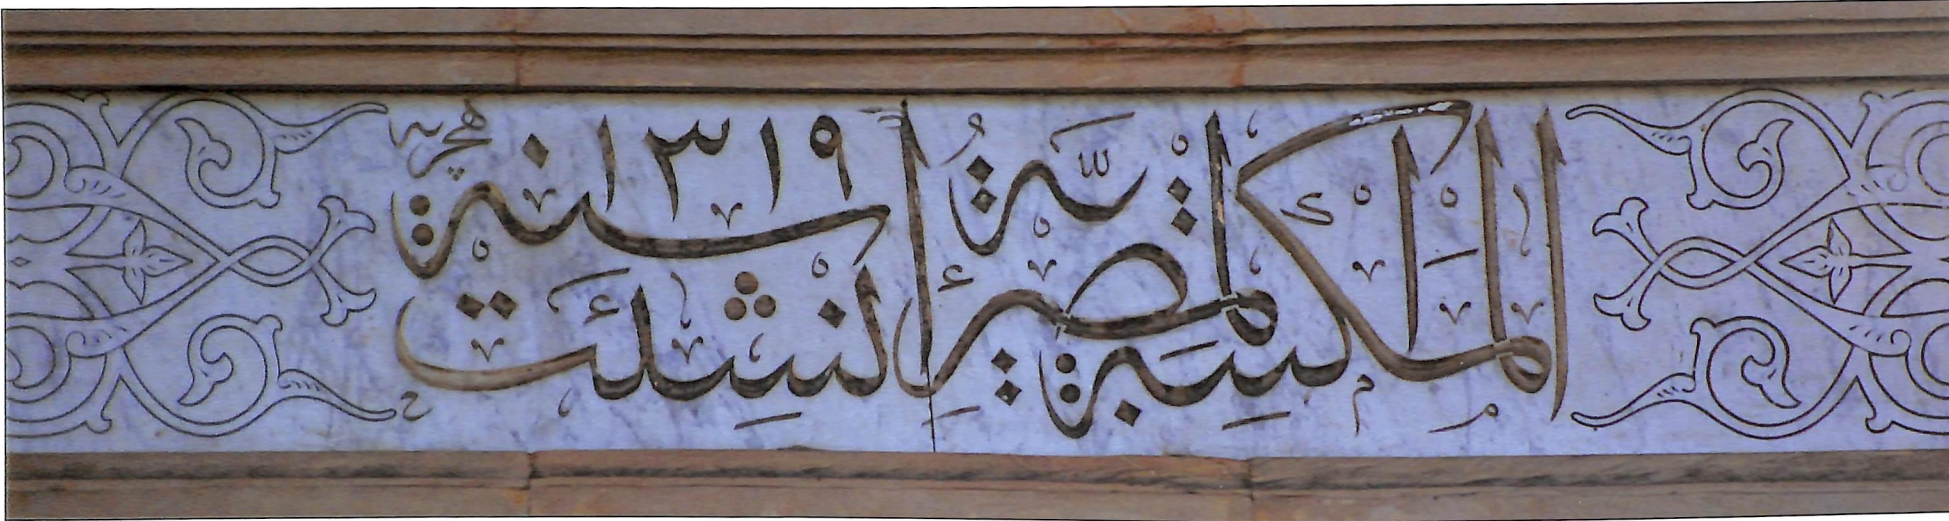 المكتبة المصرية انشئت سنة ١٣١٩ هجرية